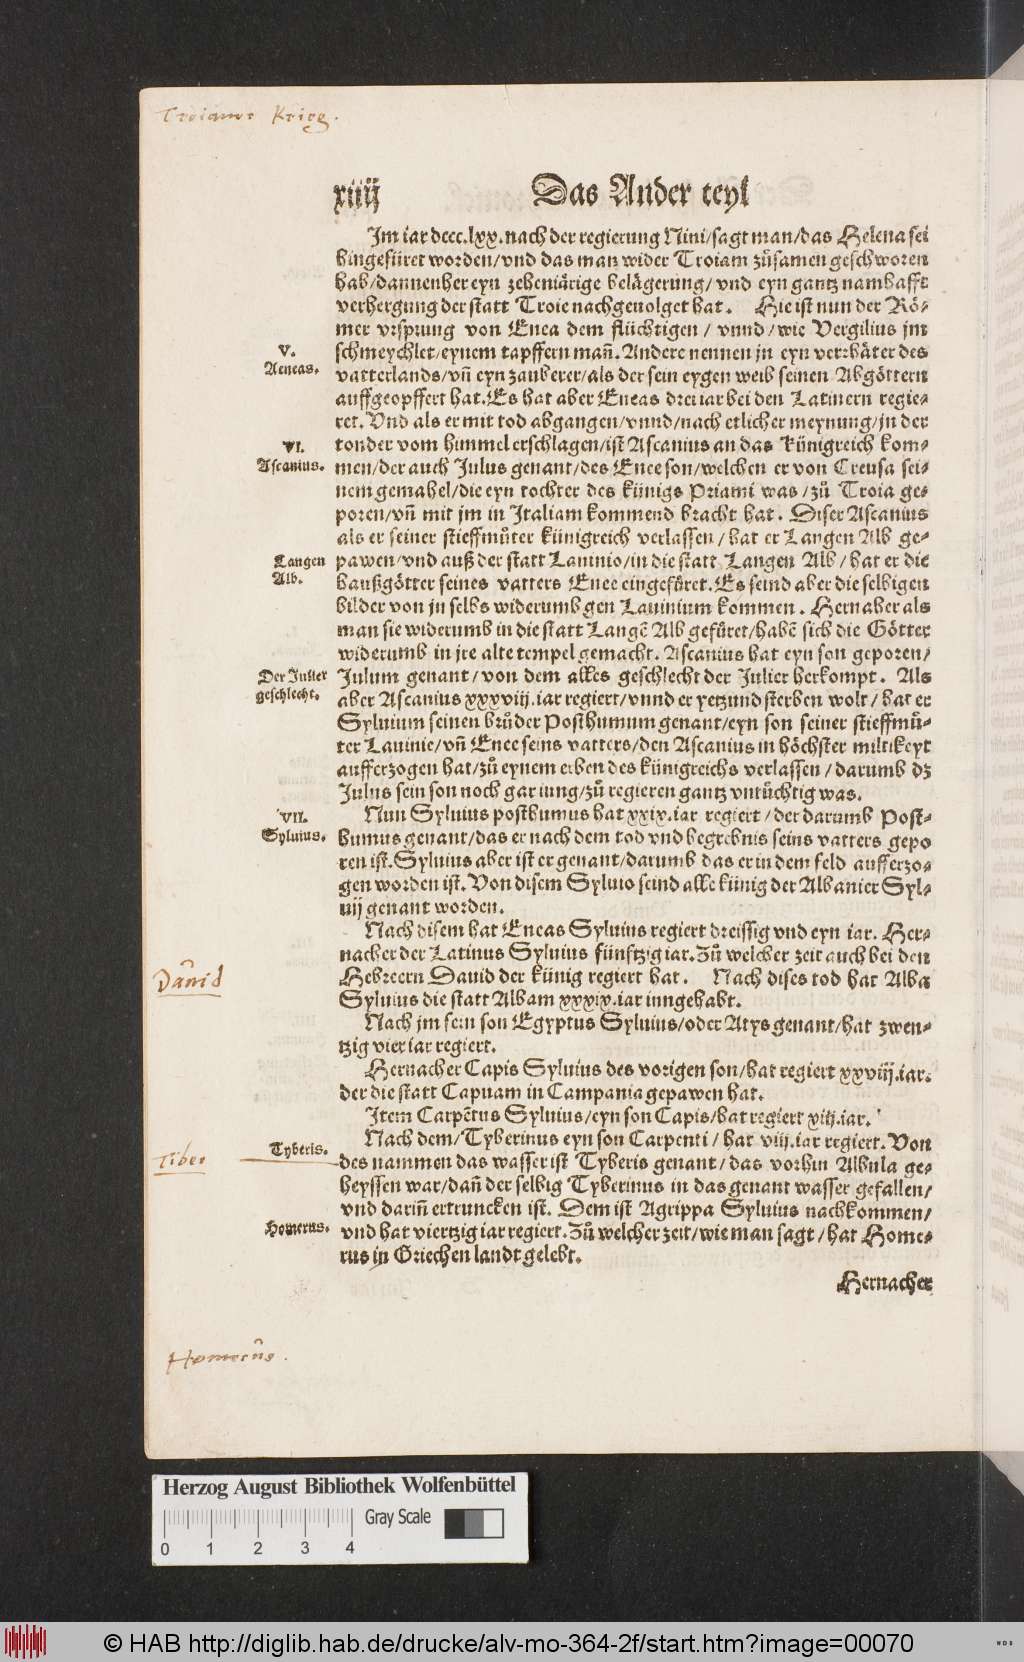 Troianer Krieg.
xiiij Das Ander teyl
Im iar dccc.lxx.nach der regierung Nini/sagt man/das Helena sei
hingefüret worden/vnd das man wider Troiam zůsamen geschworen
hab/dannenher eyn zehenjärige belägerung/vnd eyn gantz namhafft
verhergung der statt Troie nachgeuolget hat. Hie ist nun der Rö-
mer vrsprung von Enea dem flüchtigen/vnnd/wie Vergilius jm
V.
Aeneas.
schmeychlet/eynem tapffern mañ. Andere nennen jn eyn verrhäter des
vatterlands/vñ eyn zauberer/als der sein eygen weib seinen Abgöttern
auffgeopffert hat. Es hat aber Eneas drei iar bei den Latinern regie-
ret. Vnd als er mit tod abgangen/vnnd/nach etlicher meynung/jn der
VI.
Ascanius.
tonder vom himmel erschlagen/ist Ascanius an das künigreich kom-
men/der auch Julus genant/des Enee son/welchen er von Creusa sei-
nem gemahel/die eyn tochter des künigs Priami was/zů Troia ge-
poren/vñ mit jm in Italiam kommend bracht hat. Diser Ascanius
als er seiner stieffmůter künigreich verlassen/hat er Langen Alb ge-
Langen
Alb.
pawen/vnd auß der statt Lauinio/in die statt Langen Alb/hat er die
haußgötter seines vatters Enee eingefüret. Es seind aber die selbigen
bilder von jn selbs widerumb gen Lauinium kommen. Hernaber als
man sie widerumb in die statt Langē Alb gefüret/habē sich die Götter
widerumb in jre alte tempel gemacht. Ascanius hat eyn son geporen/
Der Julier
geschlecht.
Julum genant/von dem alles geschlecht der Julier herkompt. Als
aber Ascanius xxxviij.iar regiert/vnnd er yetzund sterben wolt/hat er
Syluium seinen brůder Posthumum genant/eyn son seiner stieffmů-
ter Lauinie/vñ Enee seins vatters/den Ascanius in höchster miltikeyt
aufferzogen hat/zů eynem erben des künigreichs verlassen/darumb dz
Julus sein son noch gar iung/zů regieren gantz vntüchtig was.
VII.
Syluius.
Nun Syluius posthumus hat xxix.iar regiert/der darumb Post-
humus genant/das er nach dem tod vnd begrebnis seins vatters gepo
ren ist. Syluius aber ist er genant/darumb das er in dem feld aufferzo-
gen worden ist. Von disem Syluio seind alle künig der Albanier Syl-
uij genant worden.
Nach disem hat Eneas Syluius regiert dreissig vnd eyn iar. Her-
nacher der Latinus Syluius fünftzig iar. Zů welcher zeit auch bei den
Dauid
Hebreern Dauid der künig regiert hat. Nach dises tod hat Alba
Syluius die statt Albam xxxix.iar inngehabt.
Nach jm sein son Egyptus Syluius/oder Atys genant/hat zwen-
tzig vier iar regiert.
Hernacher Capis Syluius des vorigen son/hat regiert xxviij.iar.
der die statt Capuam in Campania gepawen hat.
Item Carpētus Syluius/eyn son Capis/hat regiert xiij.iar.
Nach dem/Tyberinus eyn son Carpenti/hat viij.iar regiert. Von
Tiber
Tyberis.
des nammen das wasser ist Tyberis genant/das vorhin Albula ge-
heyssen war/dañ der selbig Tyberinus in das genant wasser gefallen/
vnd dariñ ertruncken ist. Dem ist Agrippa Syluius nachkommen/
Homerus.
vnd hat viertzig iar regiert. Zů welcher zeit/wie man sagt/hat Home-
rus in Griechen landt gelebt.
Hernacher
Homerus.
Herzog August Bibliothek Wolfenbüttel
Gray Scale
0 1 2 3 4
© HAB http://diglib.hab.de/drucke/alv-mo-364-2f/start.htm?image=00070